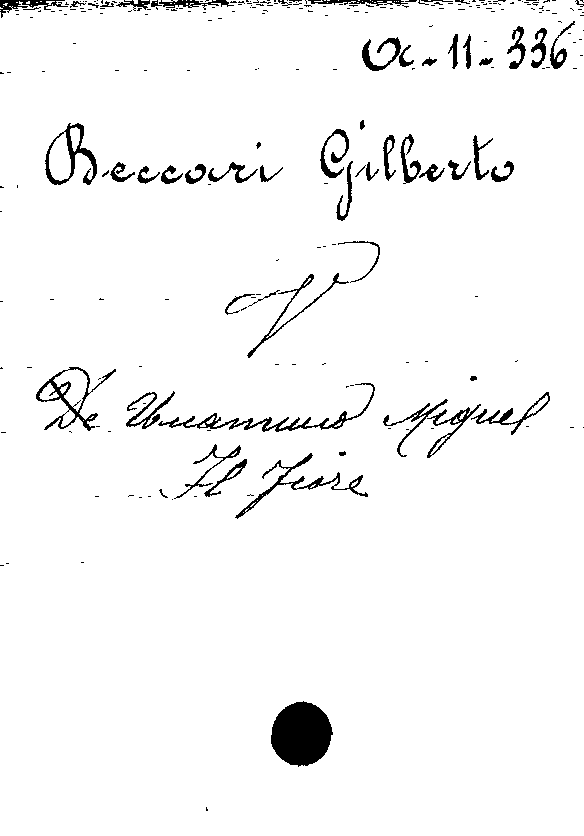 α-11-336
Beccari Gilberto
V
De Unamuno Miguel
Il Fiore